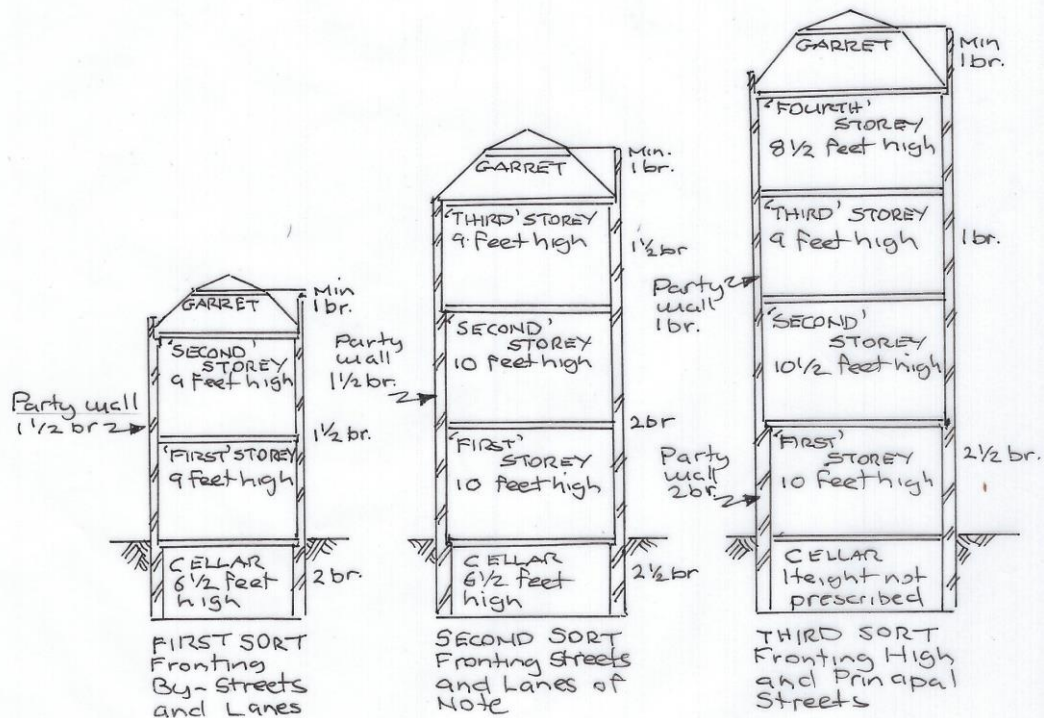 GARRET
Min
1 br.
'SECOND'
STOREY
9 feet high
Party wall
1 1/2 br
1 1/2 br.
'FIRST' STOREY
9 feet high
CELLAR
6 1/2 feet
high
2 br.
FIRST SORT
Fronting
By-Streets
and Lanes
GARRET
Min.
1 br.
'THIRD' STOREY
9 feet high
1 1/2 br
Party
wall
1 1/2 br.
'SECOND'
STOREY
10 feet high
2 br
'FIRST'
STOREY
10 feet high
CELLAR
6 1/2 feet
high
2 1/2 br
SECOND SORT
Fronting Streets
and Lanes of
Note
GARRET
Min
1 br.
'FOURTH'
STOREY
8 1/2 feet high
'THIRD' STOREY
9 feet high
1 br.
Party
wall
1 br.
'SECOND'
STOREY
10 1/2 feet high
Party
wall
2 br.
'FIRST'
STOREY
10 feet high
2 1/2 br.
CELLAR
Height not
prescribed
THIRD SORT
Fronting High
and Principal
Streets